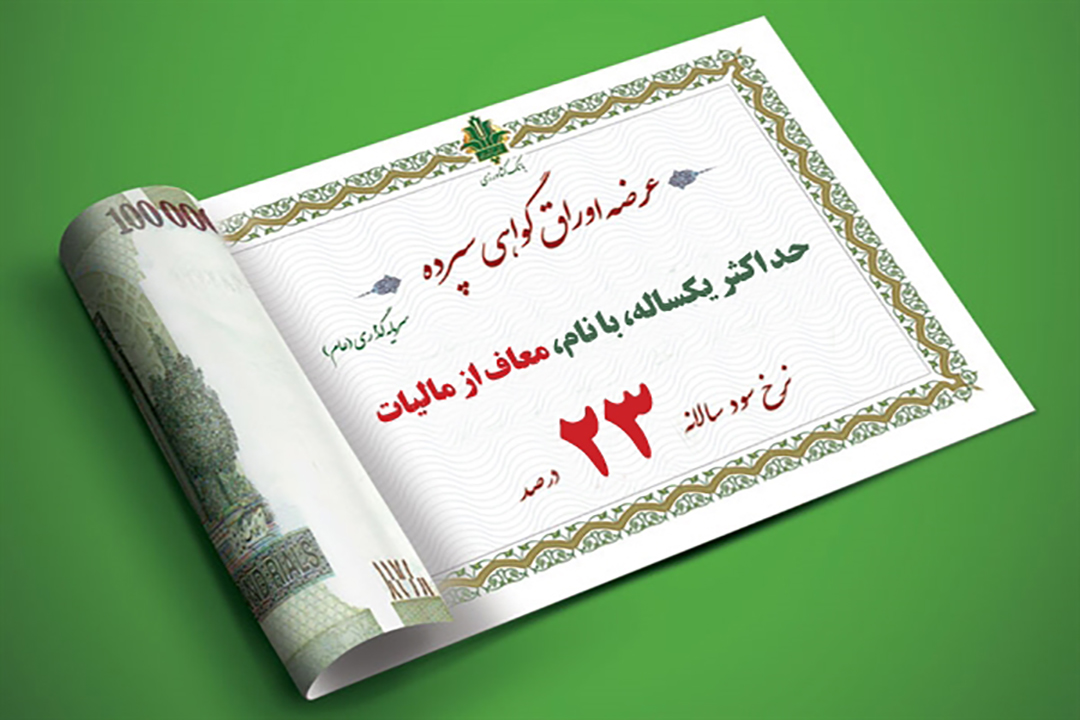 بانک کشاورزی
عرضه اوراق گواهی سپرده
سرمایه گذاری (عام)
حداکثر یکساله، با نام، معاف از مالیات
نرخ سود سالانه
۲۳
درصد
100 000
ND RIALS